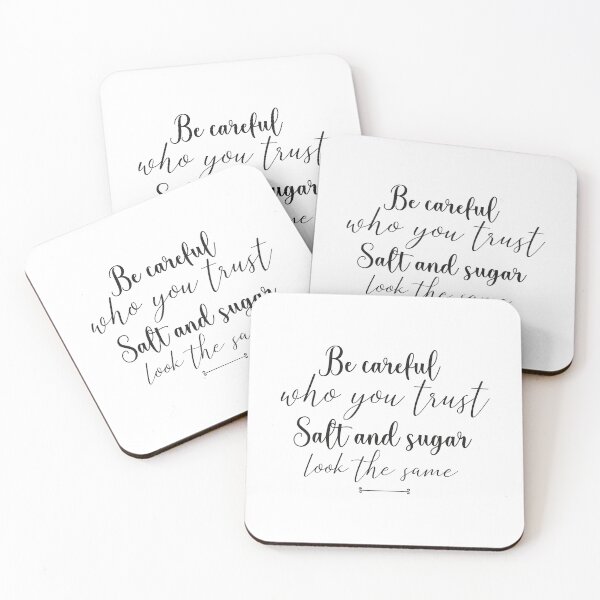 Be careful
who you trust
Salt and sugar
look the same
Be careful
who you trust
Salt and sugar
look the same
Be careful
who you trust
Salt and sugar
look the same
Be careful
who you trust
Salt and sugar
look the same